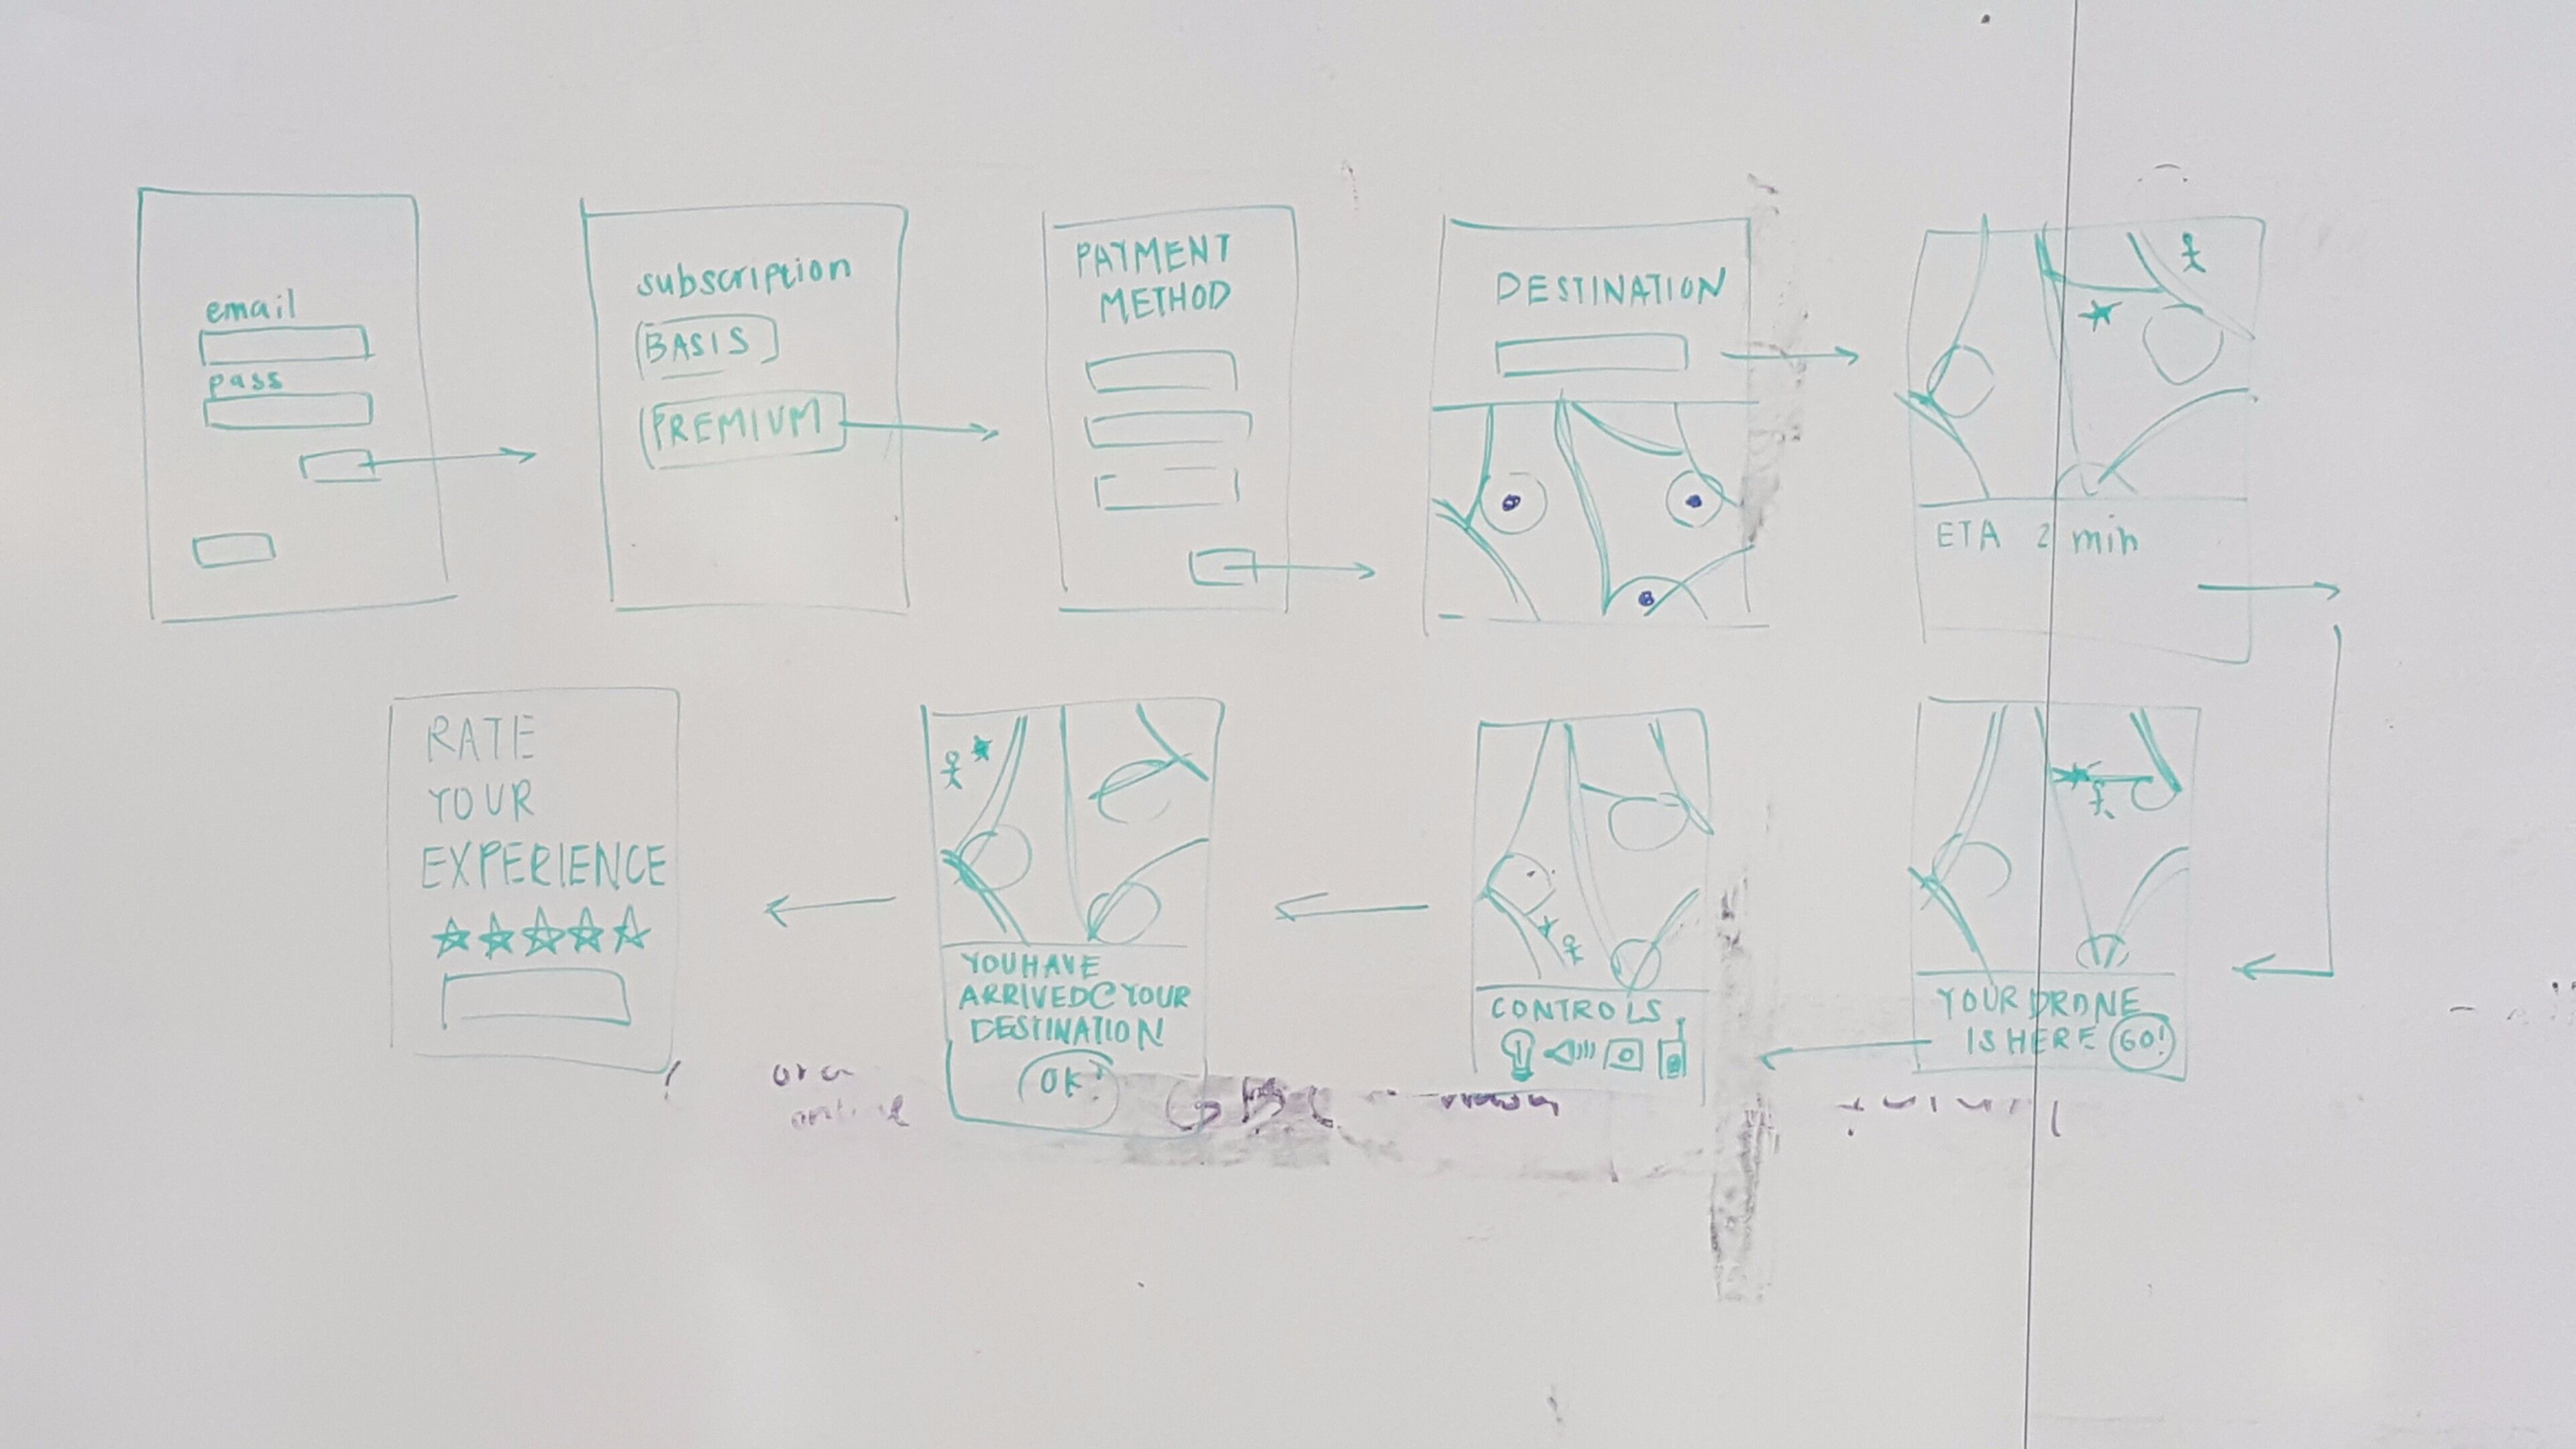 email
pass
subscription
BASIS
PREMIUM
PAYMENT
METHOD
DESTINATION
ETA 2 min
YOUR DRONE
IS HERE GO!
CONTROLS
YOU HAVE
ARRIVED@YOUR
DESTINATION
OK!
RATE
YOUR
EXPERIENCE